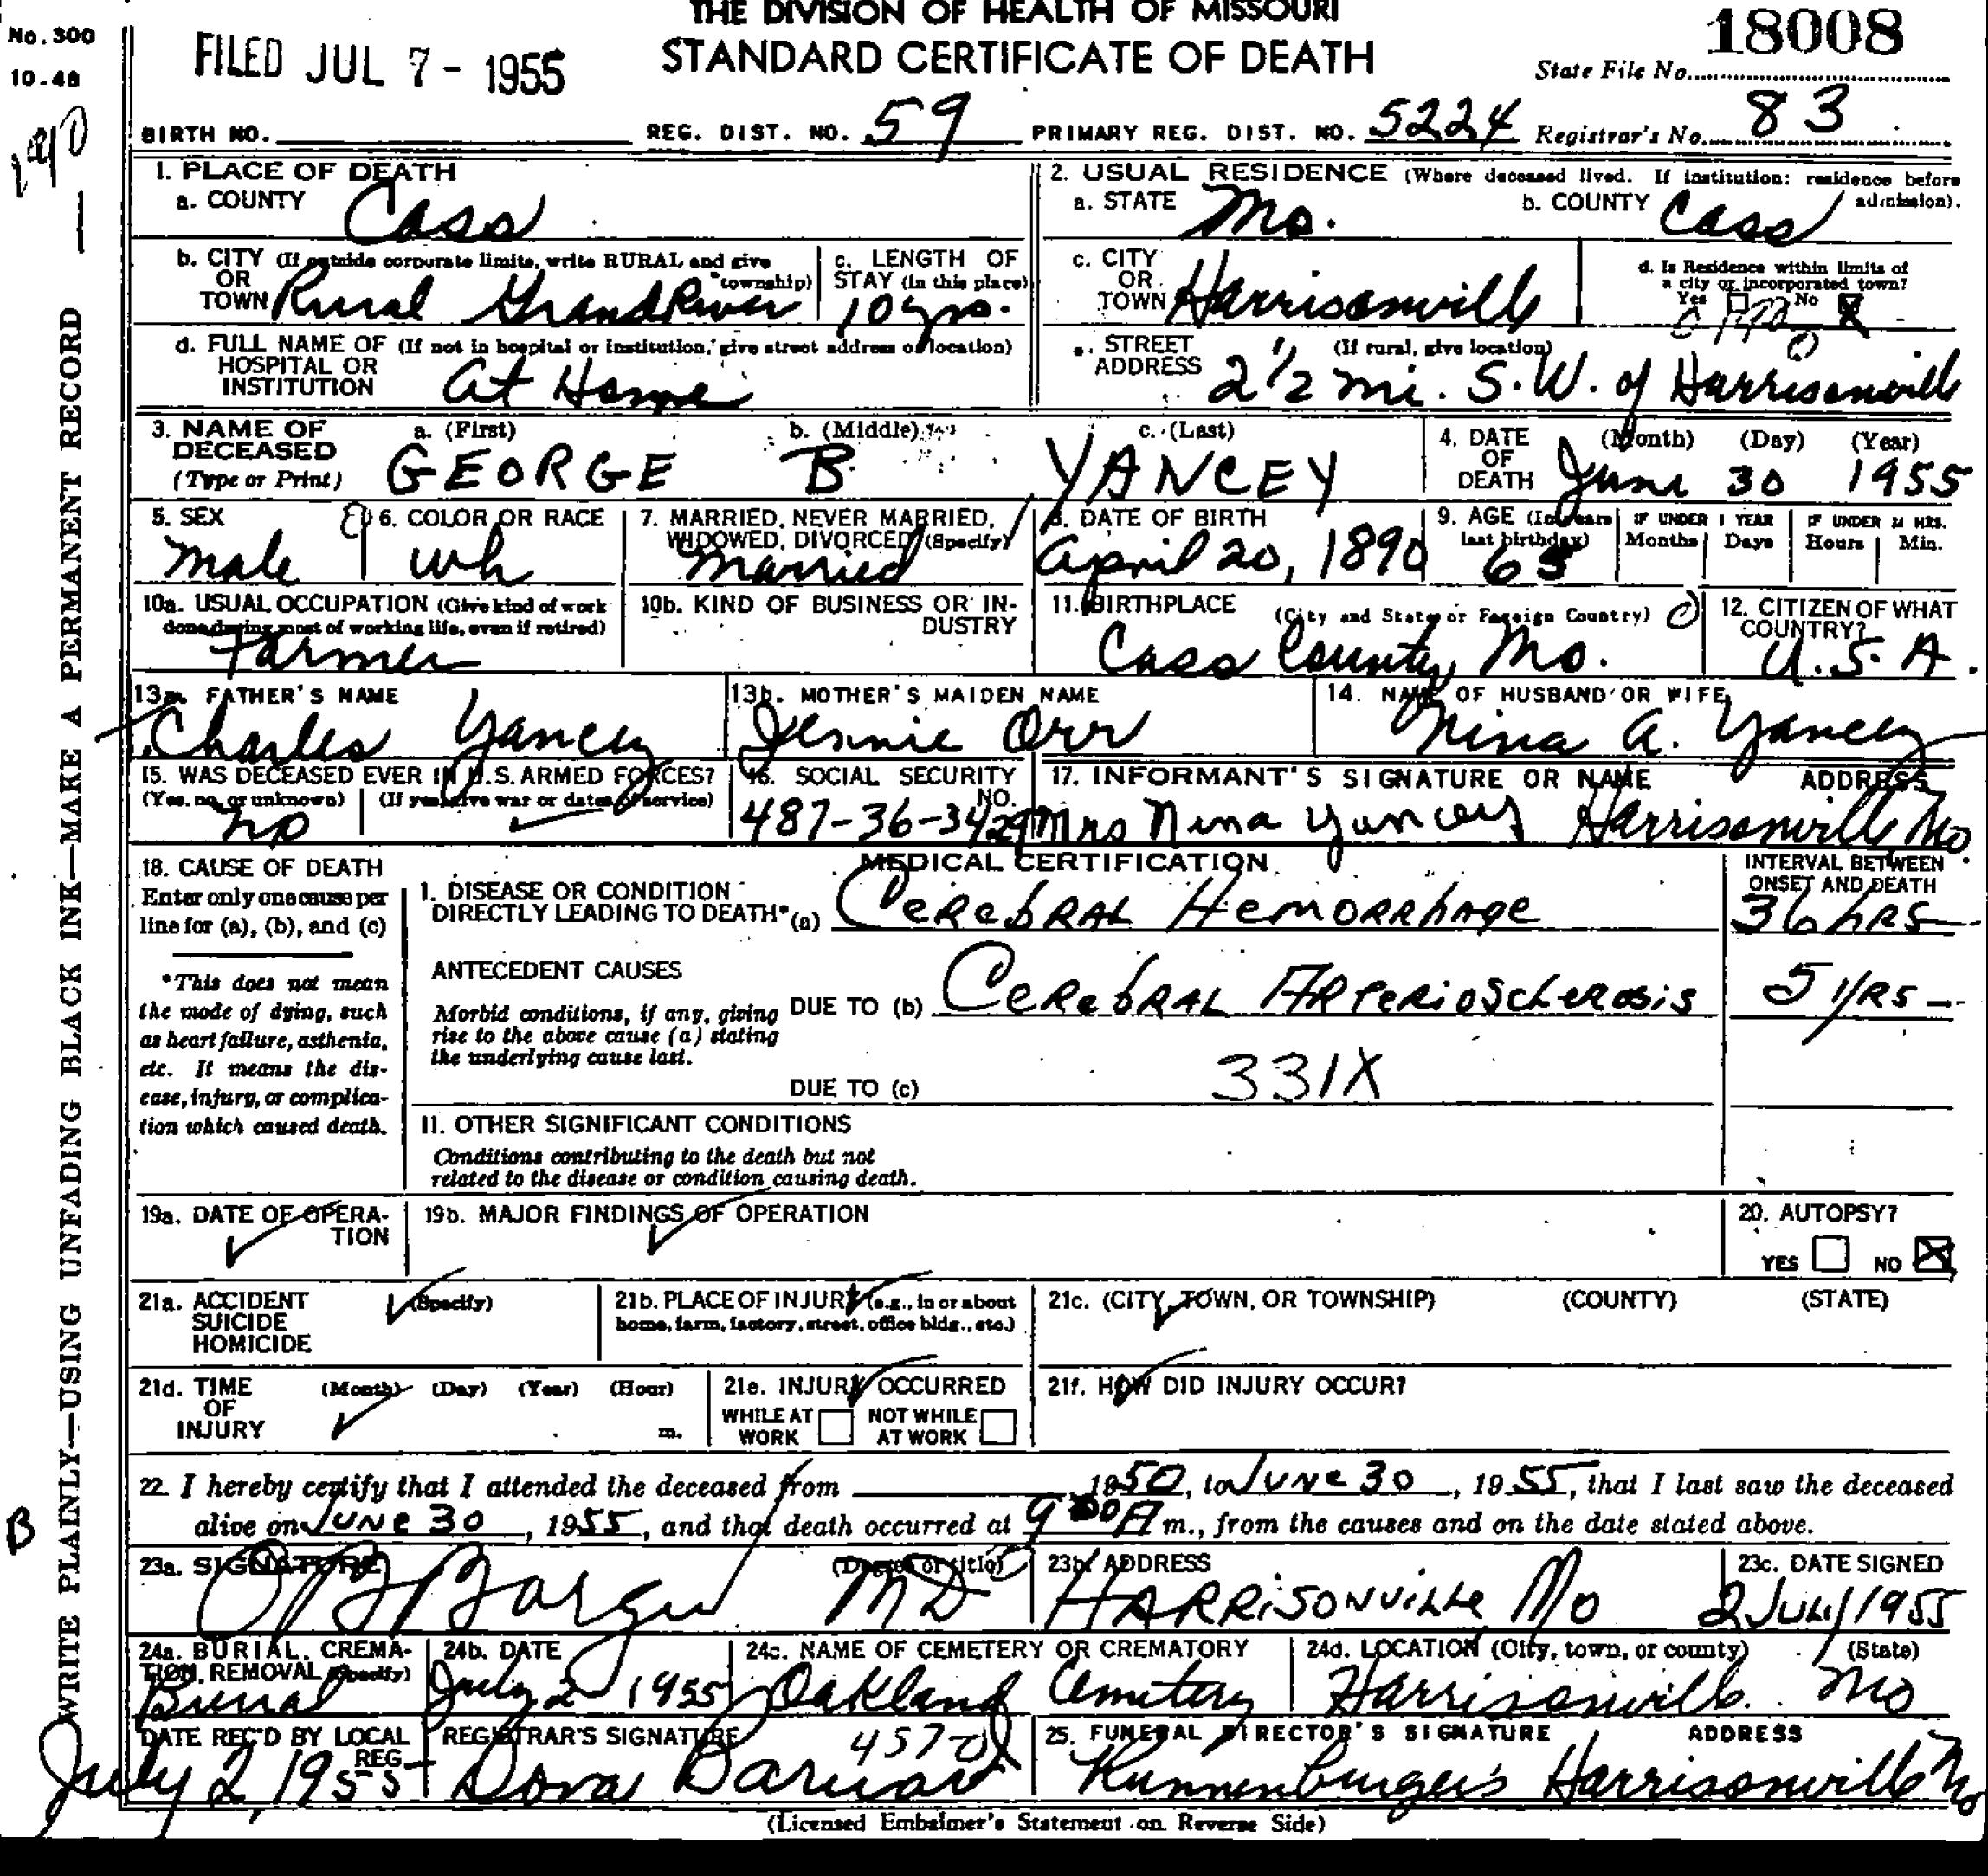 THE DIVISION OF HEALTH OF MISSOURI
STANDARD CERTIFICATE OF DEATH
No. 300
10-48
FILED JUL 7 - 1955
18008
State File No.
BIRTH NO.
REG. DIST. NO. 59
PRIMARY REG. DIST. NO. 5224
Registrar's No. 83
WRITE PLAINLY—USING UNFADING BLACK INK—MAKE A PERMANENT RECORD
B
1. PLACE OF DEATH
a. COUNTY Cass
2. USUAL RESIDENCE (Where deceased lived. If institution: residence before admission).
a. STATE Mo.
b. COUNTY Cass
b. CITY (If outside corporate limits, write RURAL and give township)
OR
TOWN Rural Grand River
c. LENGTH OF STAY (in this place)
10 yrs.
c. CITY
OR
TOWN Harrisonville
d. Is Residence within limits of a city or incorporated town?
Yes No X
d. FULL NAME OF (If not in hospital or institution, give street address or location)
HOSPITAL OR
INSTITUTION At Home
e. STREET (If rural, give location)
ADDRESS 2 1/2 mi. S.W. of Harrisonville
3. NAME OF DECEASED
(Type or Print)
a. (First) GEORGE
b. (Middle) B.
c. (Last) YANCEY
4. DATE OF DEATH
(Month) (Day) (Year)
June 30 1955
5. SEX
Male
6. COLOR OR RACE
Wh
7. MARRIED, NEVER MARRIED, WIDOWED, DIVORCED (Specify)
Married
8. DATE OF BIRTH
April 20, 1890
9. AGE (In years last birthday)
65
IF UNDER 1 YEAR
Months Days
IF UNDER 24 HRS.
Hours Min.
10a. USUAL OCCUPATION (Give kind of work done during most of working life, even if retired)
Farmer
10b. KIND OF BUSINESS OR INDUSTRY
11. BIRTHPLACE (City and State or Foreign Country)
Cass County, Mo.
12. CITIZEN OF WHAT COUNTRY?
U.S.A.
13a. FATHER'S NAME
Charles Yancey
13b. MOTHER'S MAIDEN NAME
Jennie Orr
14. NAME OF HUSBAND OR WIFE
Nina A. Yancey
15. WAS DECEASED EVER IN U.S. ARMED FORCES?
(Yes, no, or unknown) (If yes, give war or dates of service)
no
16. SOCIAL SECURITY NO.
487-36-3429
17. INFORMANT'S SIGNATURE OR NAME ADDRESS
Mrs Nina Yancey Harrisonville, Mo
18. CAUSE OF DEATH
Enter only one cause per line for (a), (b), and (c)
*This does not mean the mode of dying, such as heart failure, asthenia, etc. It means the disease, injury, or complication which caused death.
MEDICAL CERTIFICATION
INTERVAL BETWEEN ONSET AND DEATH
I. DISEASE OR CONDITION
DIRECTLY LEADING TO DEATH* (a) Cerebral Hemorrhage
36 hrs
ANTECEDENT CAUSES
Morbid conditions, if any, giving rise to the above cause (a) stating the underlying cause last.
DUE TO (b) Cerebral Arteriosclerosis
5 yrs
DUE TO (c)
331X
II. OTHER SIGNIFICANT CONDITIONS
Conditions contributing to the death but not related to the disease or condition causing death.
19a. DATE OF OPERATION
19b. MAJOR FINDINGS OF OPERATION
20. AUTOPSY?
YES NO X
21a. ACCIDENT SUICIDE HOMICIDE (Specify)
21b. PLACE OF INJURY (e.g., in or about home, farm, factory, street, office bldg., etc.)
21c. (CITY, TOWN, OR TOWNSHIP) (COUNTY) (STATE)
21d. TIME OF INJURY (Month) (Day) (Year) (Hour) m.
21e. INJURY OCCURRED
WHILE AT WORK NOT WHILE AT WORK
21f. HOW DID INJURY OCCUR?
22. I hereby certify that I attended the deceased from 1950, to June 30, 1955, that I last saw the deceased
alive on June 30, 1955, and that death occurred at 9:00 A m., from the causes and on the date stated above.
23a. SIGNATURE (Degree or title)
MD
23b. ADDRESS
Harrisonville Mo
23c. DATE SIGNED
2 July 1955
24a. BURIAL, CREMATION, REMOVAL (Specify)
Burial
24b. DATE
July 2 1955
24c. NAME OF CEMETERY OR CREMATORY
Oakland Cemetery
24d. LOCATION (City, town, or county) (State)
Harrisonville. Mo
DATE REC'D BY LOCAL REG.
July 2, 1955
REGISTRAR'S SIGNATURE
Dora Barward
25. FUNERAL DIRECTOR'S SIGNATURE ADDRESS
Runnenburger's Harrisonville Mo
(Licensed Embalmer's Statement on Reverse Side)